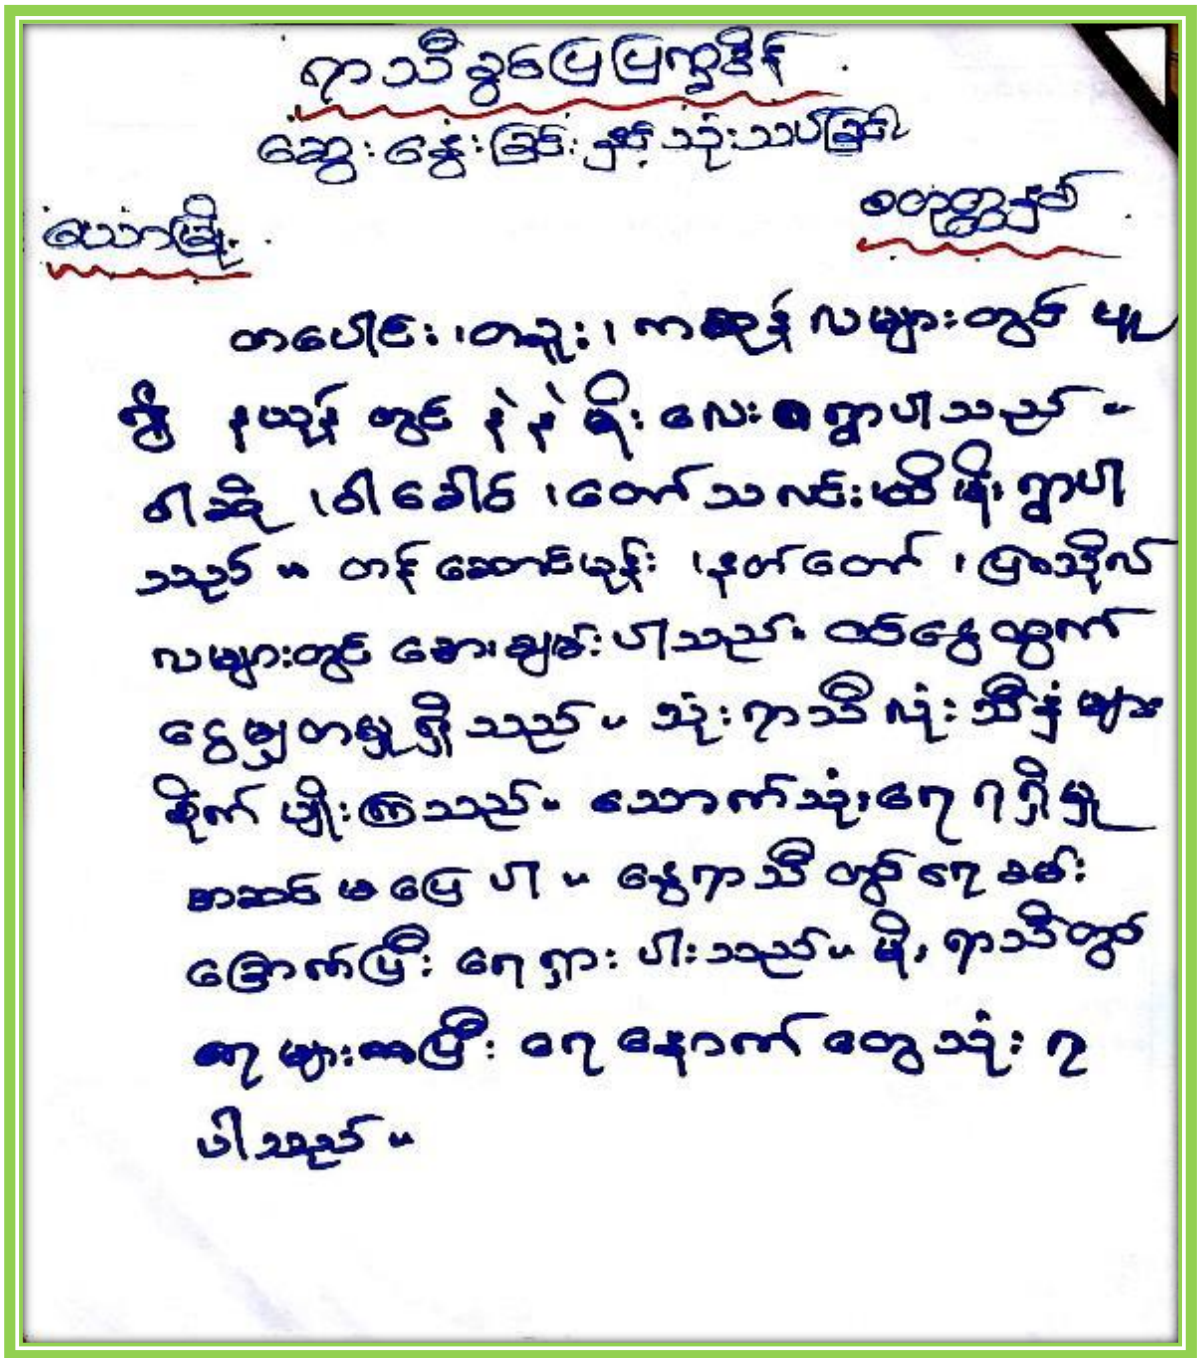 ရာသီခွင်ပြေပြက္ခဒိန်
ဆွေးနွေးခြင်းနှင့် သုံးသပ်ခြင်း
ယောမြို့
စတုတ္ထနှစ်
တပေါင်း၊ တခူး၊ ကဆုန် လများတွင် ပူ
၍ နယုန် တွင် နဲနဲ မိုးလေး ရွာပါသည်။
ဝါဆို ၊ဝါခေါင် ၊တော်သလင်းထိ မိုး ရွာပါ
သည်။ တန်ဆောင်မုန်း ၊နတ်တော် ၊ ပြာသိုလ်
လများတွင် အေးချမ်းပါသည်။ ဝင်ငွေထွက်
ငွေမျှတမှုရှိသည်။ သုံးရာသီလုံး သီးနှံများ
စိုက်ပျိုးကြသည်။ သောက်သုံးရေ ရရှိမှု
အဆင်မပြေပါ။ နွေရာသီတွင် ရေခမ်း
ခြောက်ပြီး ရေရှားပါးသည်။ မိုးရာသီတွင်
ရေများလာပြီး ရေနောက်တွေသုံးရ
ပါသည်။